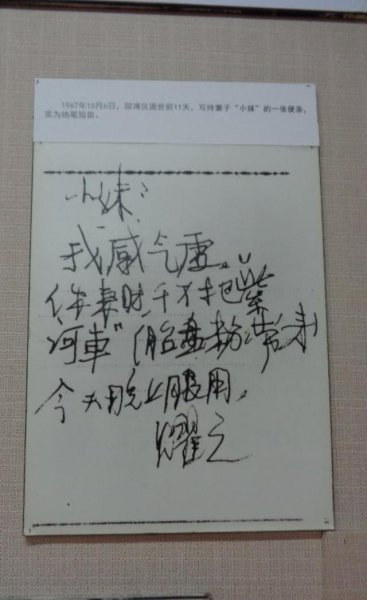 1967年10月6日，即溥仪逝世前11天，写给妻子“小妹”的一张便条，
实为绝笔短信。
小妹：
我感气虚。
你来时，千万把“紫
河車”（胎盘粉）带来
今天晚上服用。
耀之